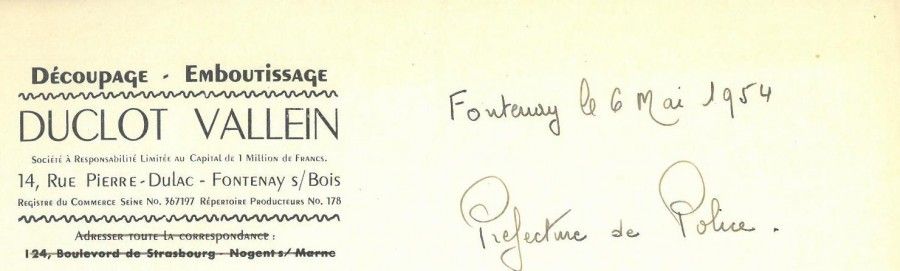 Découpage - Emboutissage
DUCLOT VALLEIN
Société à Responsabilité Limitée au Capital de 1 Million de Francs.
14, Rue Pierre-Dulac - Fontenay s/Bois
Registre du Commerce Seine No. 367197 Répertoire Producteurs No. 178
Adresser toute la correspondance :
124, Boulevord de Strasbourg - Nogent s/Marne
Fontenay le 6 Mai 1954
Prefecture de Police.